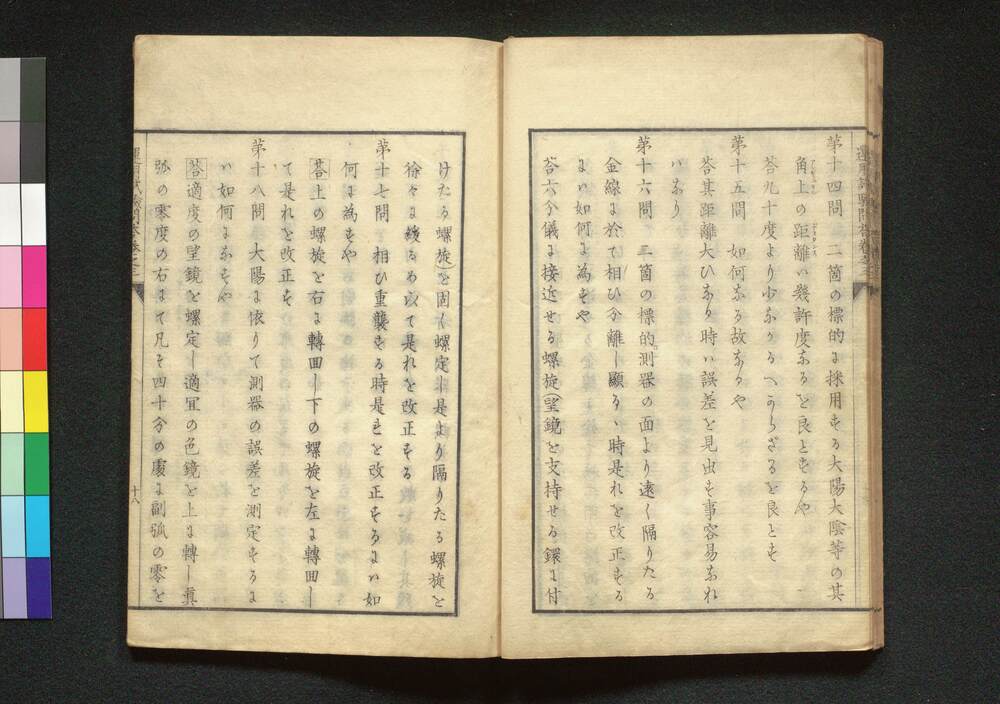 第十四問　二箇の標的ま採用する大陽大陰等の其
角上の距離ハ幾許度なるを良とするや
答九十度より少なかるへからざるを良とす
第十五問　如何なる故なるや
答其距離大ひなり時ハ誤差を見出す事容易なれ
ハなり
第十六問　三箇の標的測器の面より遠く隔りたる
金線ま於て相ひ分離し顕るゝ時是れを改正する
まハ如何ま為すや
答六分儀ま接近せる螺旋(望鏡を支持せる鐶ま付
けたる螺旋)を固く螺定非是より隔りたる螺旋を
徐々ま緩るめ以て是れを改正する
第十七問　相ひ重襲する時是れを改正するまハ如
何ま為すや
答上の螺旋を右ま轉回し下の螺旋を左ま轉回し
て是れを改正す
第十八問　大陽ま依りて測器の誤差を測定するま
ハ如何まなすや
答適度の望鏡を螺定し適冝の色鏡を上ま轉し眞
弧の零度の右まて凡そ四十分の處ま副弧の零を
十八